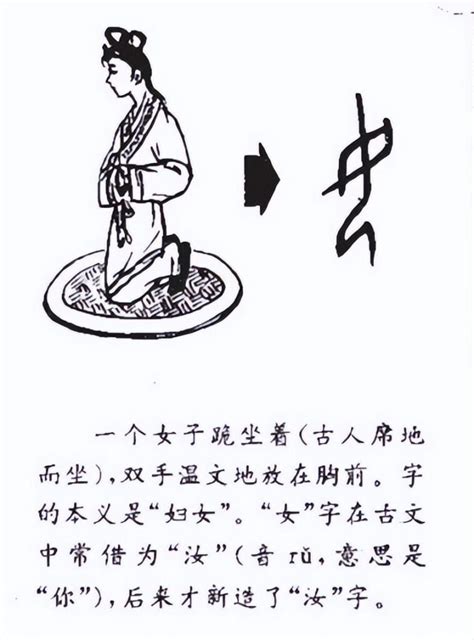 一个女子跪坐着(古人席地
而坐),双手温文地放在胸前。字
的本义是“妇女”。“女”字在古文
中常借为“汝”(音 rǔ,意思是
“你”),后来才新造了“汝”字。